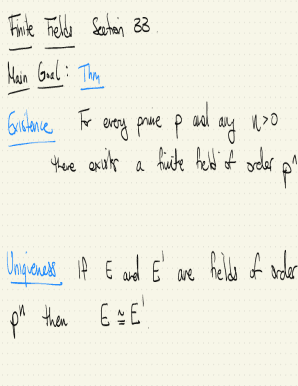 Finite Fields Section 33.
Main Goal: Thm
Existence For every prime p and any n>0
there exists a finite field of order pⁿ
Uniqueness If E and E' are fields of order
pⁿ then E ≅ E'.